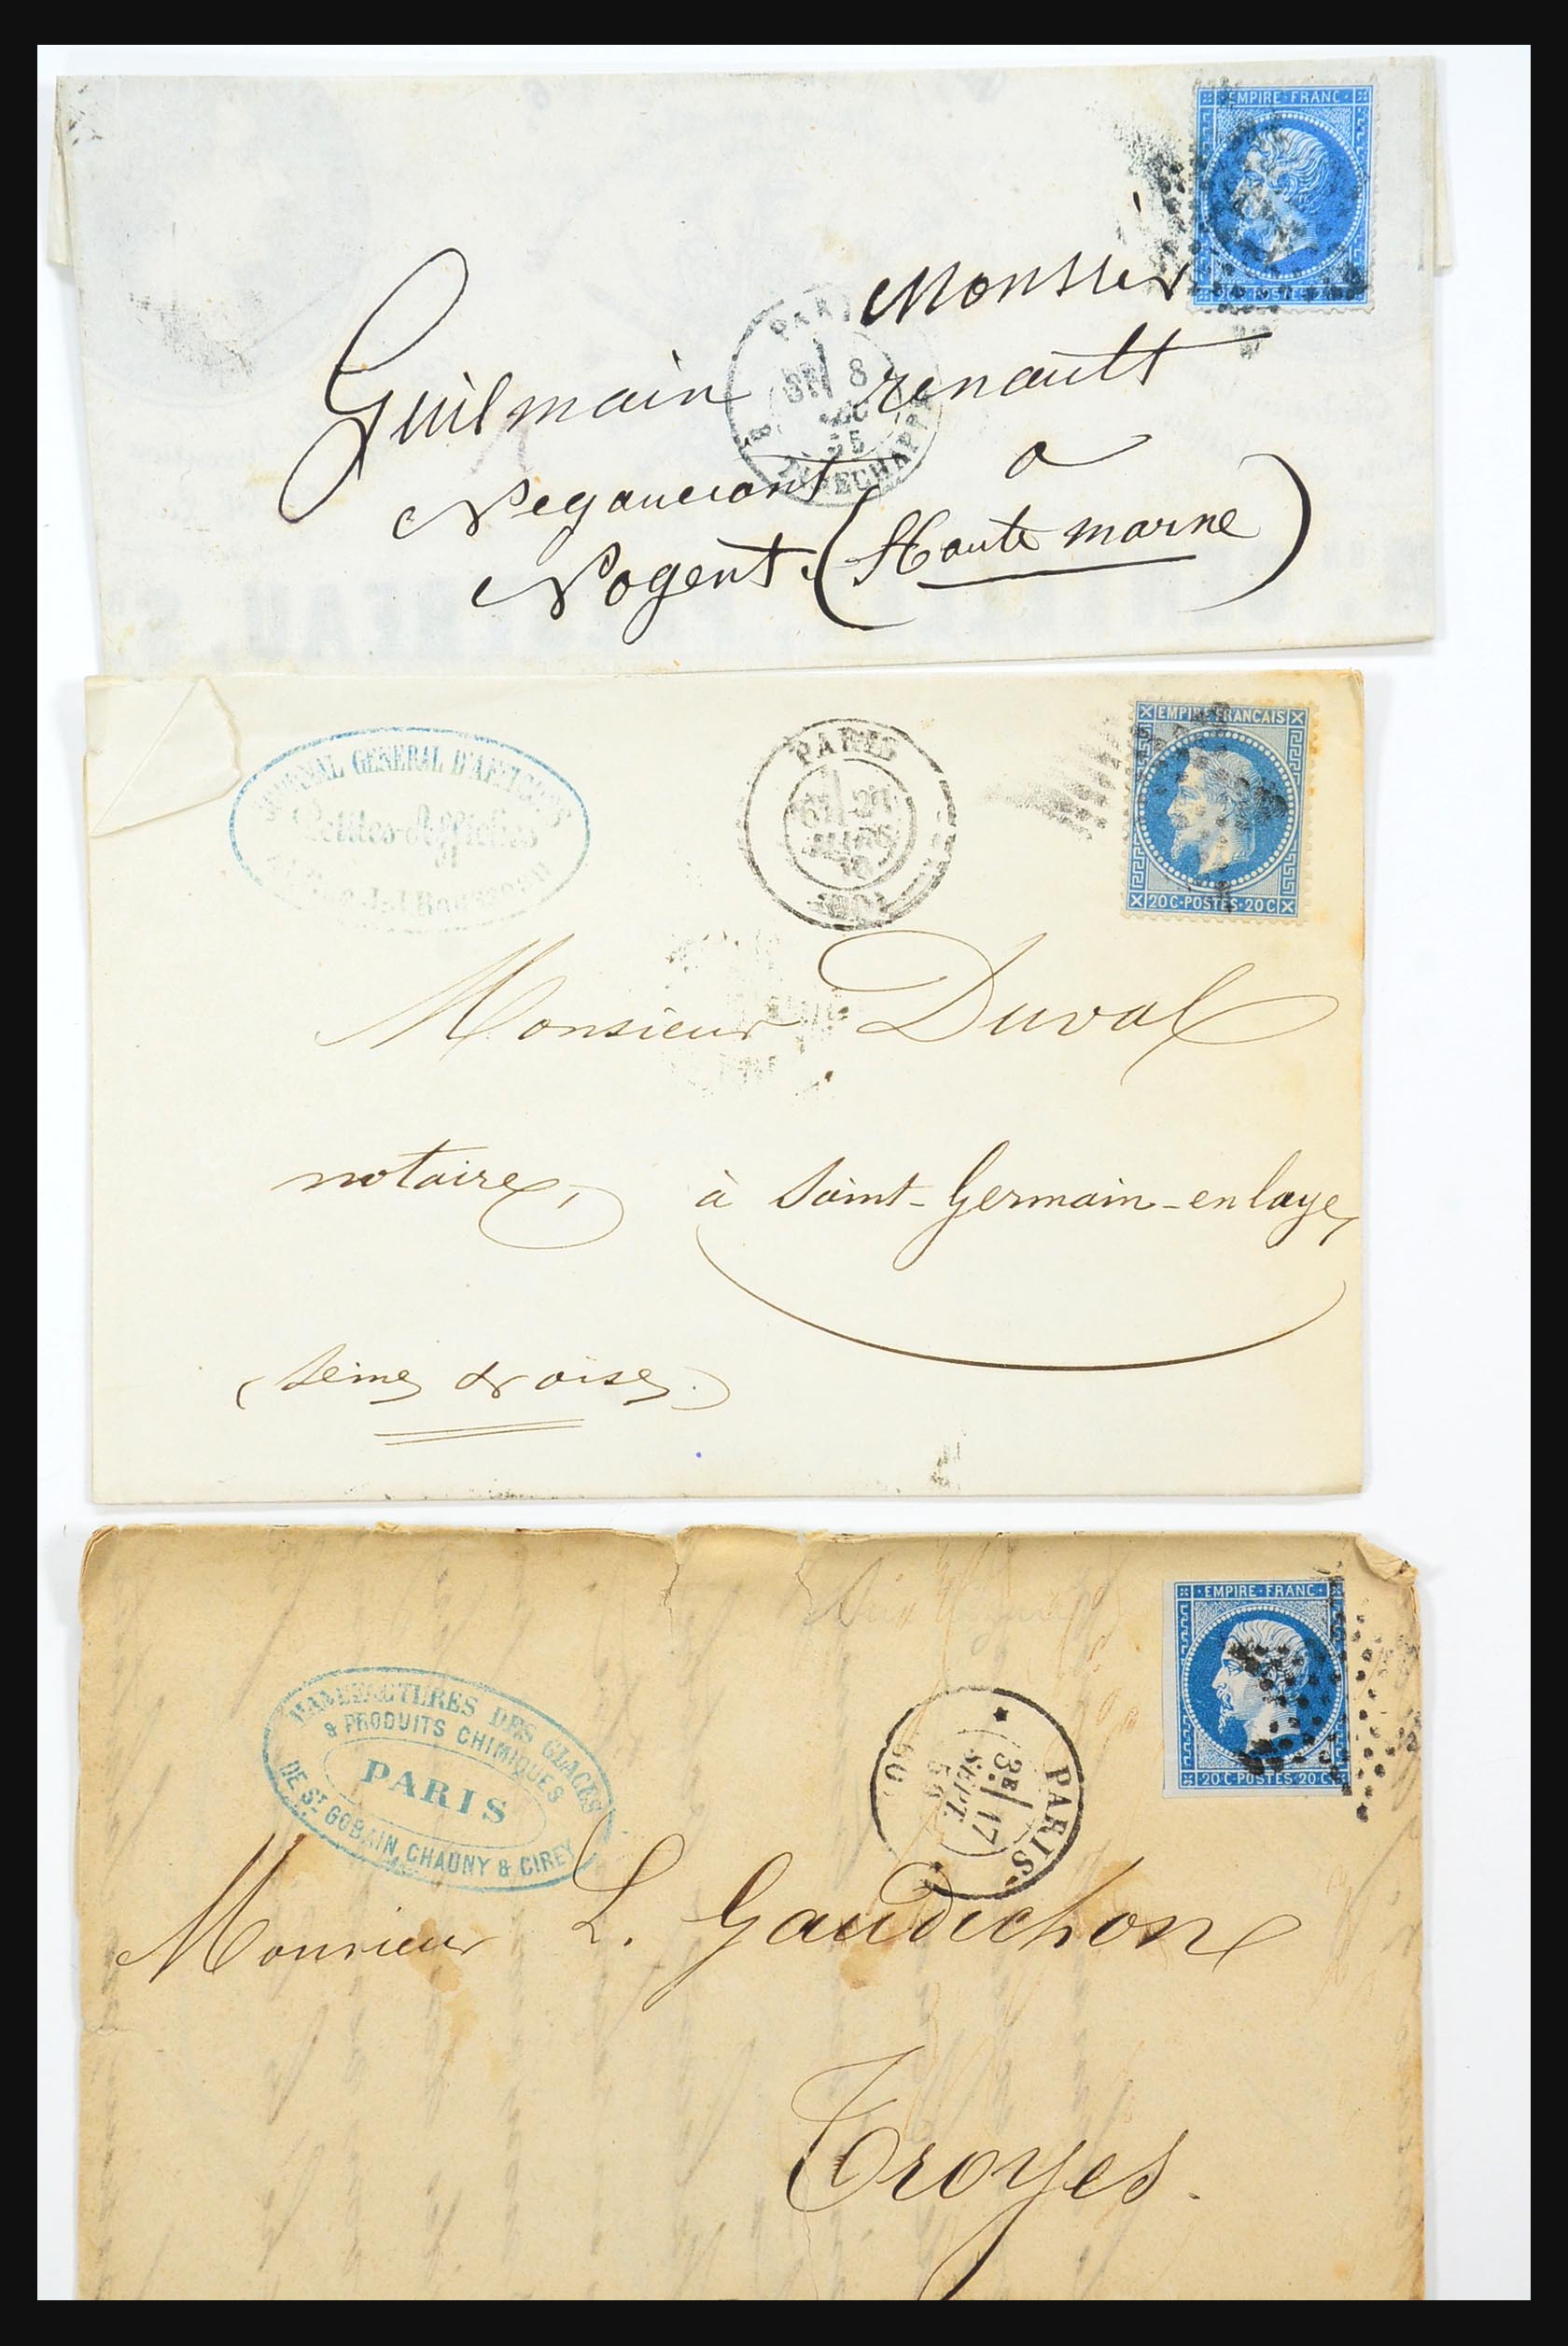 EMPIRE·FRANC·
Monsieur
Guilmain renault
a
Negauciant
Nogent. (Haute marne)
EMPIRE FRANCAIS
20C·POSTES·20C
JOURNAL GENERAL D'AFFICHES
Petites-Affiches
PARIS
MARS
(60)
Monsieur Duval
notaire, à Saint-Germain-enlaye
(Seine & oise.)
·EMPIRE·FRANC·
20·C·POSTES·20·C
MANUFACTURES DES GLACES
& PRODUITS CHIMIQUES
PARIS
DE ST GOBAIN, CHAUNY & CIREY
PARIS
3E 17
SEPT.
60
Monsieur L. Gaudichon
Troyes.